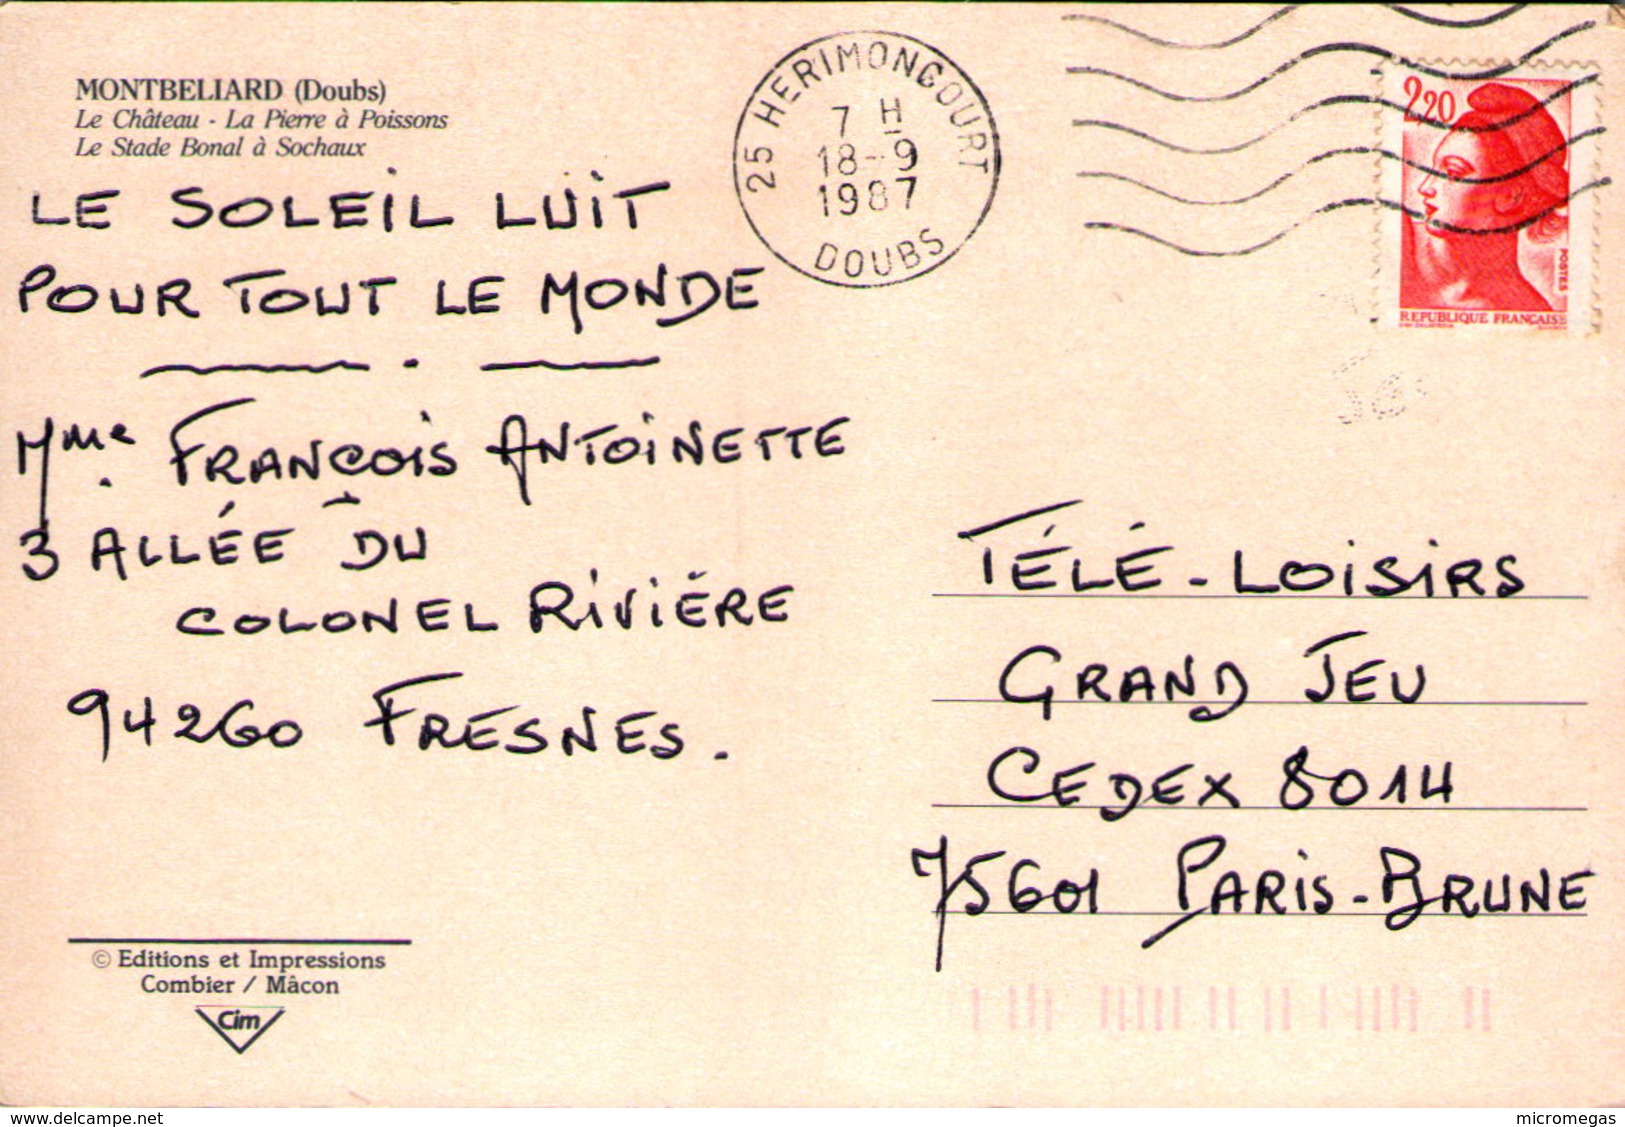 MONTBELIARD (Doubs)
Le Château - La Pierre à Poissons
Le Stade Bonal à Sochaux
LE SOLEIL LUIT
POUR TOUT LE MONDE
Mme FRANÇOIS ANTOINETTE
3 ALLÉE DU
COLONEL RIVIÉRE
94260 FRESNES.
© Editions et Impressions
Combier / Mâcon
Cim
25 HERIMONCOURT
7 H
18-9
1987
DOUBS
2,20
POSTES
REPUBLIQUE FRANÇAISE
TÉLÉ-LOISIRS
GRAND JEU
CEDEX 8014
75601 PARIS-BRUNE
www.delcampe.net
micromegas